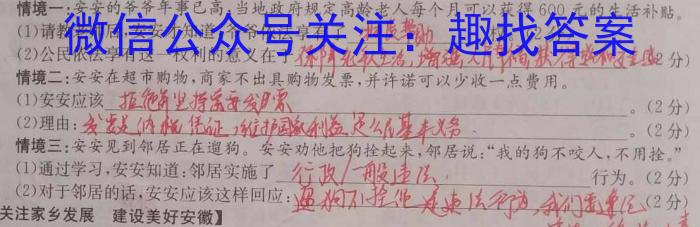 情境一:安安的爷爷年事已高,当地政府规定高龄老人每个月可以获得600元的生活补贴。
微信公众号关注:趣找答案
(2)公民依法享有这一权利的意义在于 保障
2分)
情境二:安安在超市购物,商家不出具购物发票,并许诺可以少收一点费用。
(1)安安应该 拒绝并坚持索要发票 。(2分)
(2)理由: 发票是纳税凭证,维护国家利益是公民基本义务 。(2分)
情境三:安安见到邻居正在遛狗。安安劝他把狗拴起来,邻居说:“我的狗不咬人,不用拴。”
(1)通过学习,安安知道:邻居实施了 行政/一般违法 行为。(2分)
(2)对于邻居的话,安安应该这样回应: 遛狗不拴绳是违法行为,我们要 (2分)
关注家乡发展 建设美好安徽】